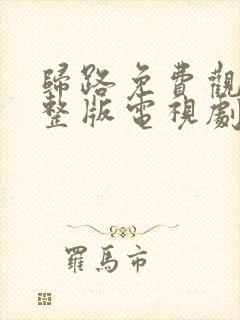 歸路免費觀
整版電視劇
羅馬市